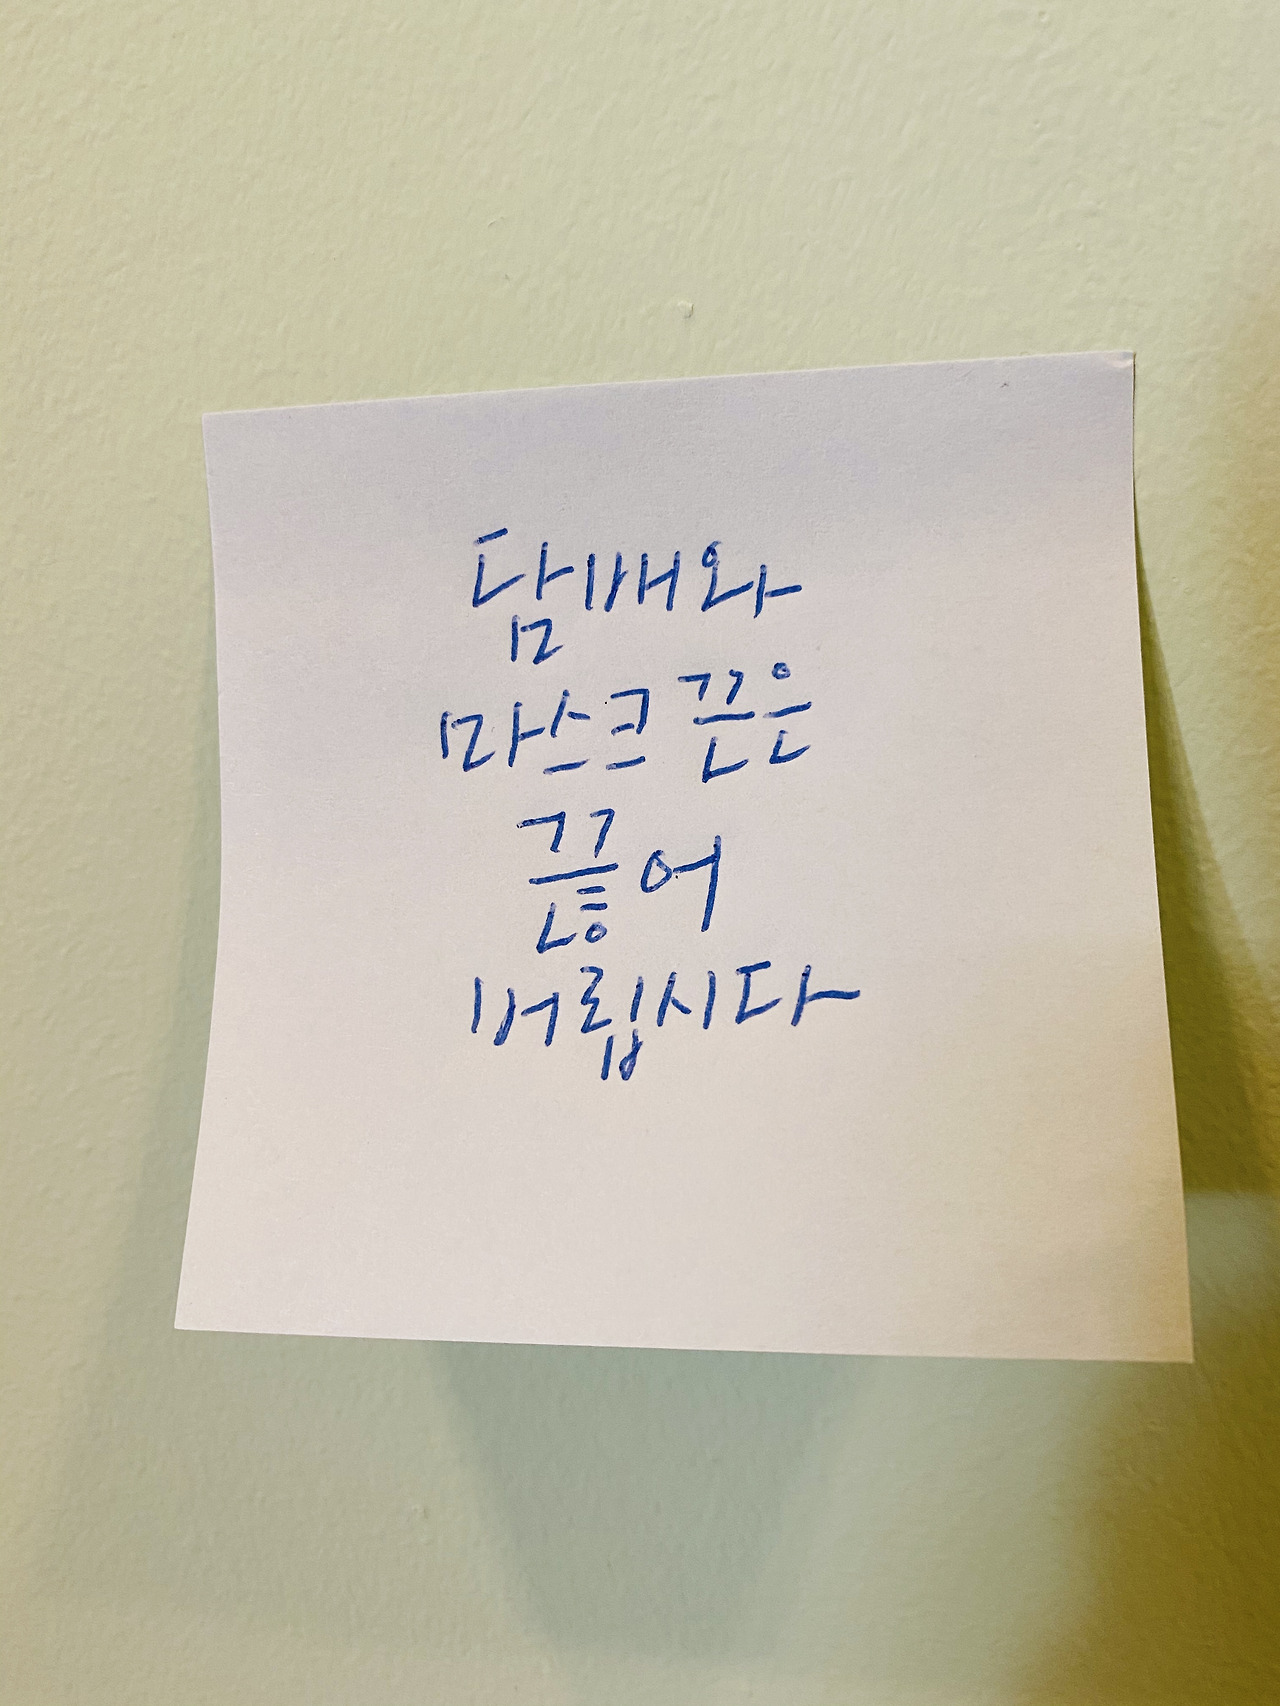 담배와
마스크 끈은
끊어
버립시다